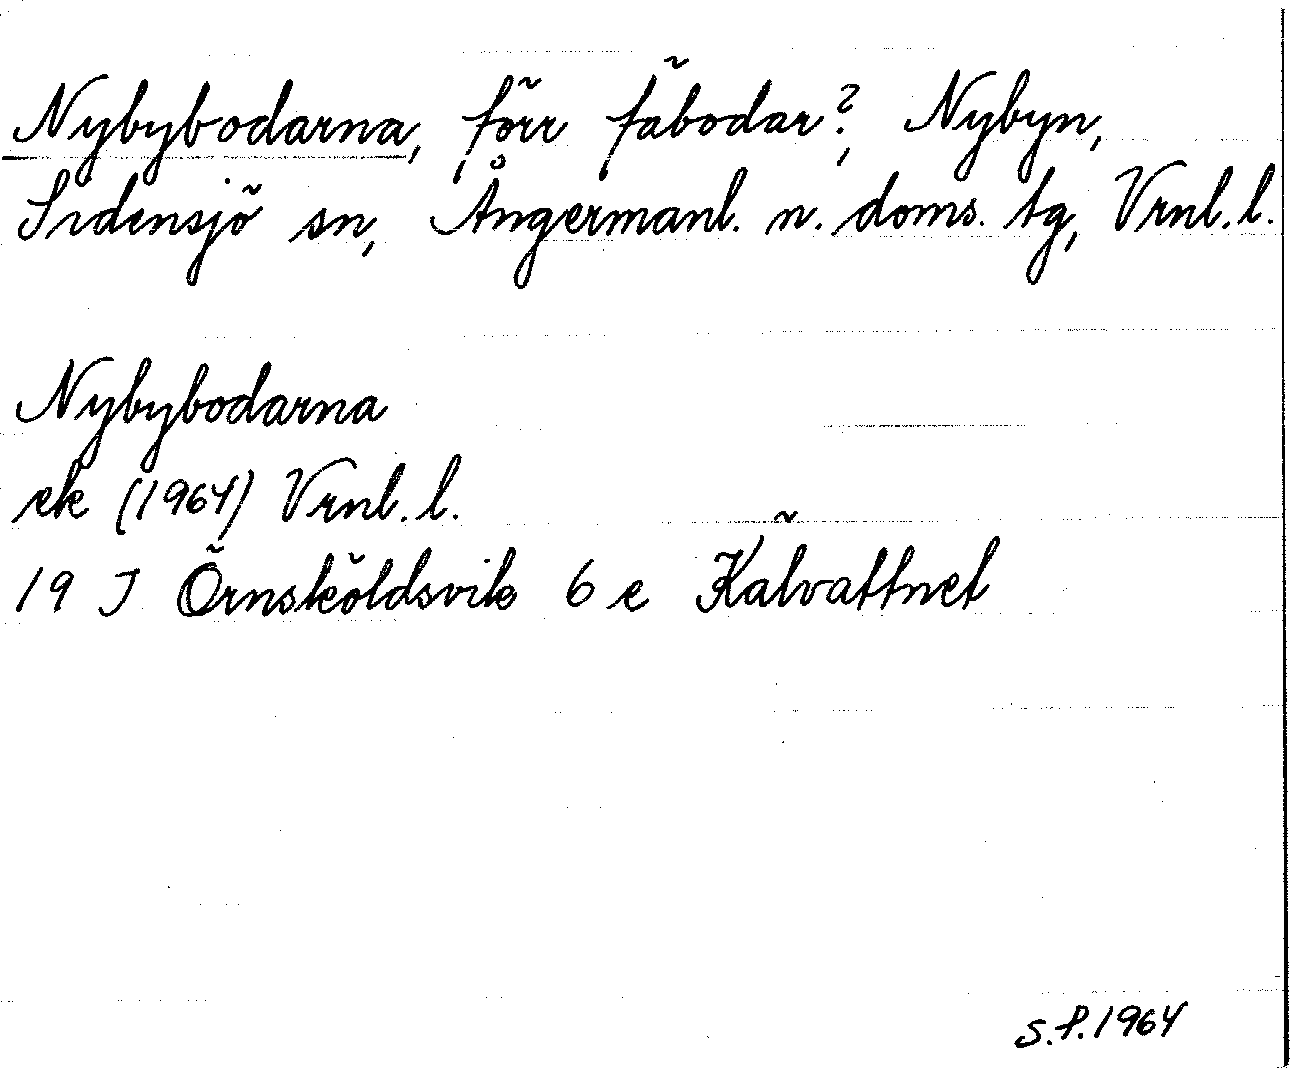 Nybybodarna, förr fäbodar?, Nybyn,
Sidensjö sn, Ångermanl. n. doms. tg, Vrnl. l.
Nybybodarna
ek (1964) Vrnl. l.
19 J Örnsköldsvik 6 e Kälvattnet
S.P. 1964